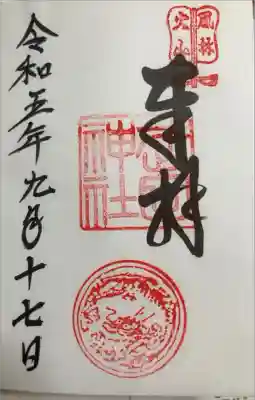 風林
火山
奉拝
神社
令和五年九月十七日